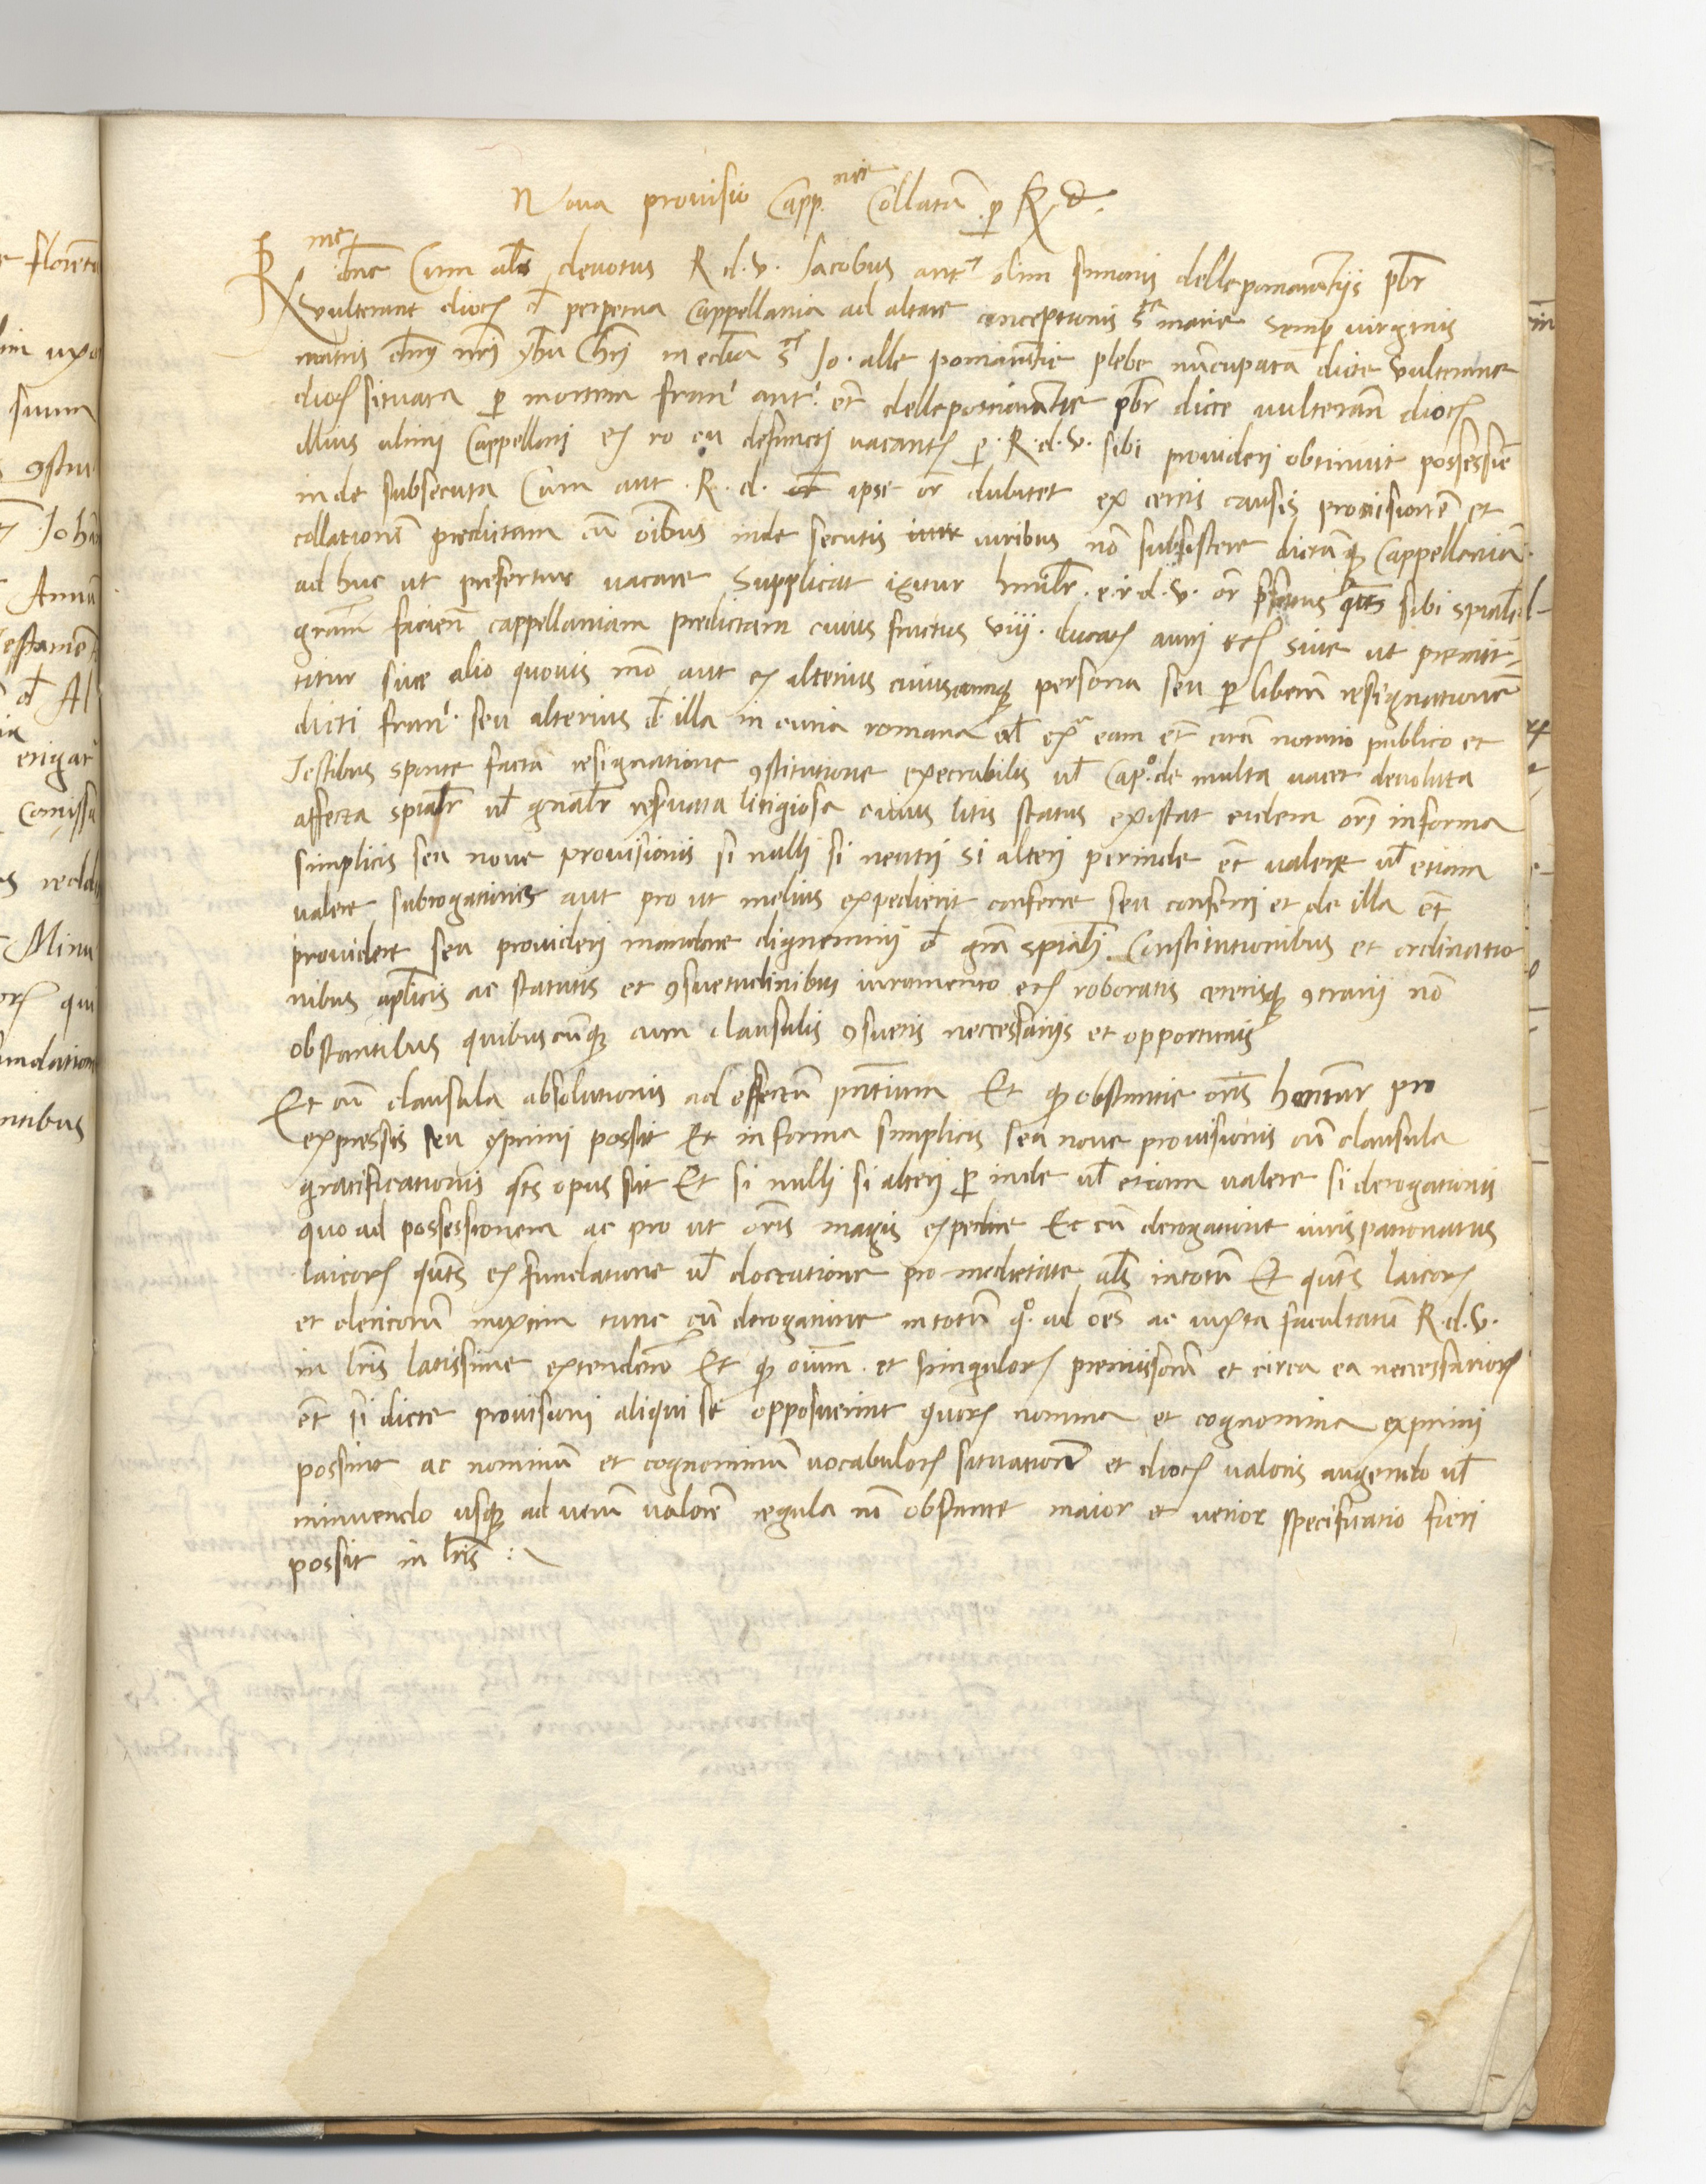 Noua prouisio Capp.nie Collatã p R d.
Rme dne Cum als deuotus R.d.v. Iacobus antˢ olim simonis dellepomarantijs pbr
vulterane dioc͛ d perpetua Cappellania ad altare conceptionis Ste marie semp virginis
matris dnij nri yhu Chri in eccłia Sⁱ Jo. alle pomarantie plebe nũcupata dicte vulterane
dioc͛ situata p mortem franⁱ antⁱ. et dellepomarantie pbr dicte uulteranẽ dioc͛
illius ultimi Cappellani ex ro cu defuncti vacanẽ p. R.d.v. sibi provideri obtinuit possessiõe
inde subsecuta Cum aut R.d. ipse or dubitet ex certis causis prouisionẽ et
collationẽ predictam cũ oĩbus inde secutis uiribus nõ subsistere dictãqȝ Cappellaniã
ad huc ut prefertur uacare Supplicat igitur humilr. e.r.d.v. or prefatus qtẽs sibi spialẽ
grãm facieñ cappellaniam predictam cuius fructus viij. ducat͛ auri etc͛ siue ut premit=
titur siue alio quouis mõ aut ex alterius cuiuscumqȝ persona seu p liberã resignationẽ
dicti franⁱ. seu alterius d illa in curia romana uł exª eam et corã notario publico et
Testibus sponte factã resignatione 9stitutione execrabilis uł Cap°. de multa uacet deuoluta
affecta spialr uł gnalr reseruata litigiosa cuius litis status existat eidem orĩ in forma
simplicis seu noue prouisionis si nulli si neutri si alteri perinde et ualere uł etiam
valere subrogationis aut pro ut melius expedierit conferre seu conferri et de illa et
prouidere seu prouideri mandare dignemini d grã spiali. Constitutionibus et ordinatio
nibus apłicis ac statutis et 9suetudinibus iuramento etc͛ roboratis ceterisqȝ 9trarijs nõ
obstantibus quibuscũqȝ cum clausulis 9suetis neccessarijs et opportunis
Et cũ clausula absolutionis ad effectũ pñtium Et qȝ obstantie orĩs hẽantur pro
expressis seu exprimi possit Et in forma simplicis seu noue prouisionis cũ clausula
gratificationis qts opus sit Et si nulli si alteri p inde uł etiam ualere si derogationis
quo ad possessionem ac pro ut orĩs magis expedire Et cũ derogatione iuris patronatus
laicor͛ qtẽs ex fundatione uł dotatione pro medietate als in totũ Et qtẽs laicor͛
et clericorũ mixtim tunc cũ derogatione in totũ q°. ad oẽs ac iuxta facultatũ R.d.v.
in lris latissime extendendo Et qȝ oium. et singulor͛ premissorũ et circa ea neccessarior͛
et si dicte prouisioni aliqui se opposuerint quor͛ nomina et cognomina exprimi
possint ac nominũ et cognominũ uocabulor͛ situationẽ et dioc͛ ualoris augendo uł
minuendo usqȝ ad uerũ ualorẽ regula nõ obstante maior et uerior specificatio fieri
possit in lris :~